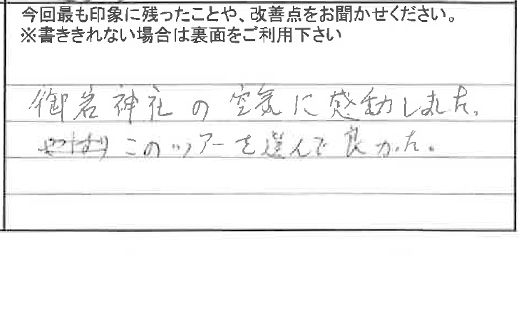 今回最も印象に残ったことや、改善点をお聞かせください。
※書ききれない場合は裏面をご利用下さい
御岩神社の空気に感動しました。
やっぱりこのツアーを選んで良かった。